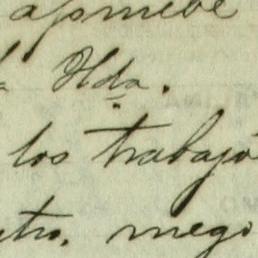 apruebe
a Hda.
los trabajo
tro. mego